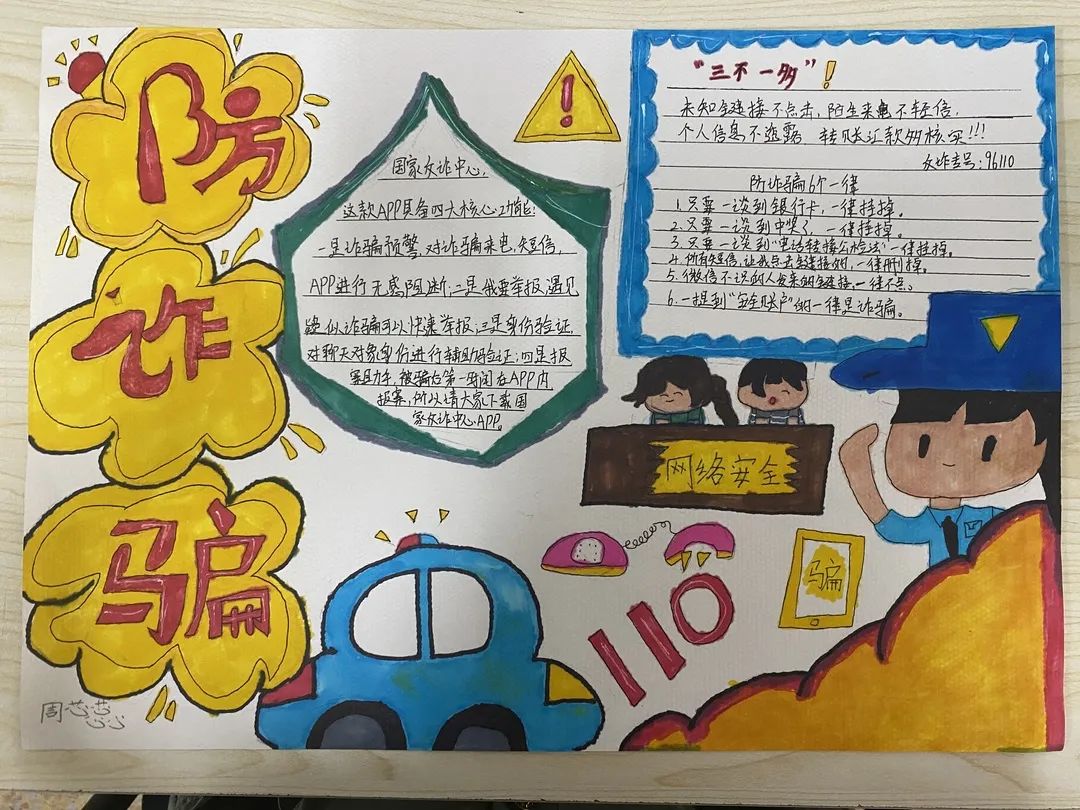 防
诈
骗
国家反诈中心,
这款APP具备四大核心功能:
一是诈骗预警,对诈骗来电,短信,
APP进行无感阻断;二是我要举报,遇见
疑似诈骗可以快速举报;三是身份验证
对聊天对象身份进行辅助验证;四是报
案助手,被骗后第一时间在APP内
报案,所以请大家下载国
家反诈中心APP。
"三不一多"!
未知链接不点击,陌生来电不轻信,
个人信息不透露 转账汇款多核实!!!
反诈专号:96110
防诈骗6个一律
1.只要一谈到银行卡,一律挂掉。
2.只要一谈到中奖了,一律挂掉。
3.只要一谈到"电话转接公检法"一律挂掉。
4.所有短信,让我点击链接的,一律删掉。
5.微信不认识的人发来的链接,一律不点。
6.一提到"安全账户"的一律是诈骗。
网络安全
骗
110
周芯蕊